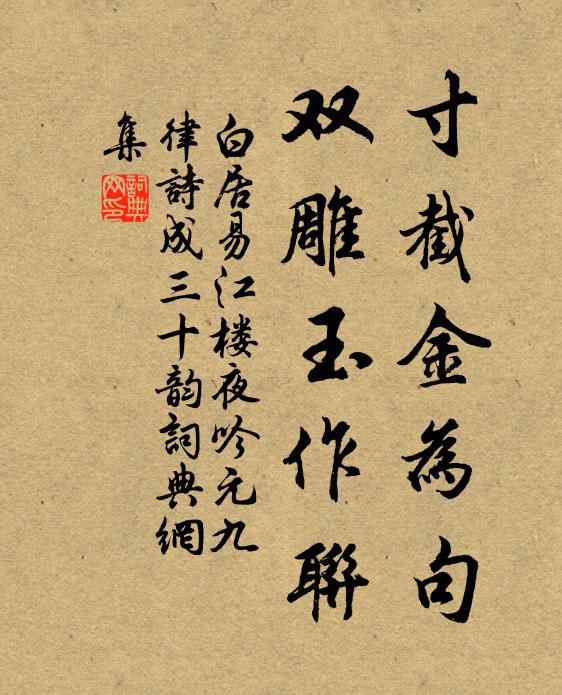 寸截金為句
双雕玉作聯
白居易江楼夜吟元九
律詩成三十韵詞典網
集
詞典
网印